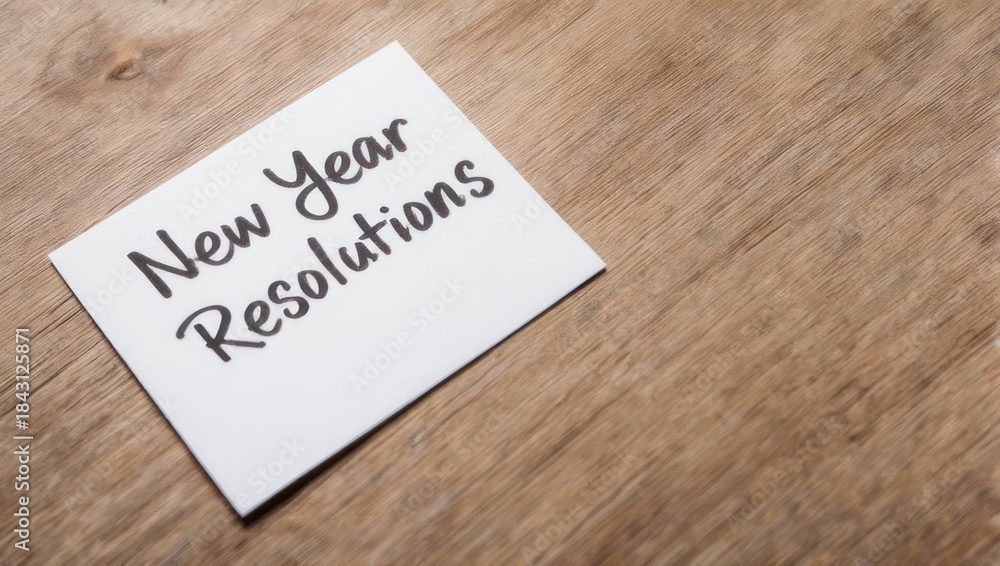 New Year
Resolutions
Adobe Stock | #1843125871